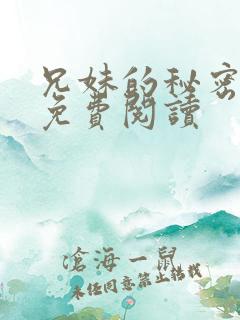 兄妹的秘密
免費閱讀
滄海一鼠
未經同意禁止轉載